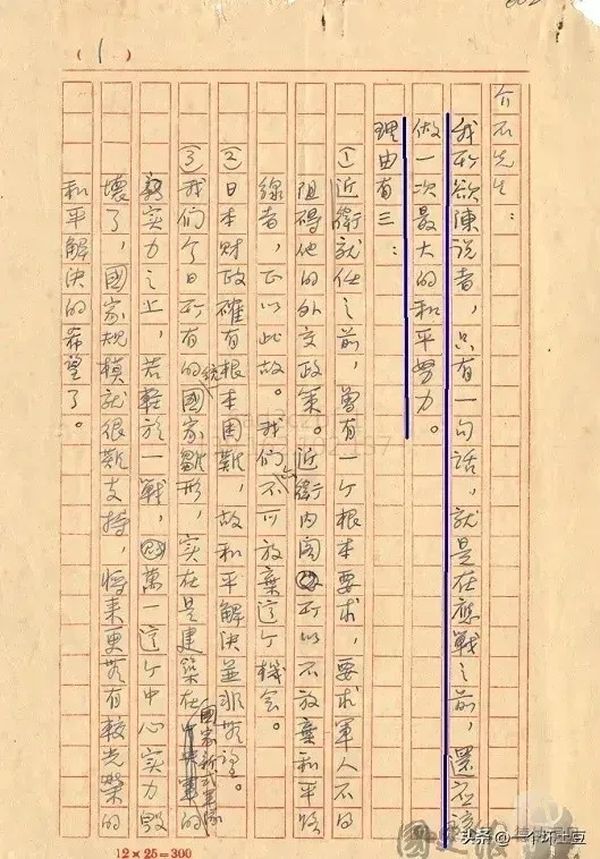 (1)
介石先生：
我所欲陳说者，只有一句话，就是在應戰之前，還应該
做一次最大的和平努力。
理由有三：
①近衛就任之前，曾有一个根本要求，要求軍人不的
阻碍他的外交政策。近衛内阁所以不放棄和平路
線者，正以此故。我们亦不可放棄这个機会。
②日本财政確有根本困難，故和平解决並非無望。
③我们今日所有的統國家雛形，实在是建築在國家新式軍隊的
实力之上，若輕於一戰，萬一这个中心实力毁
壞了，國家規模就很難支持，將来更無有較光榮的
和平解决的希望了。
12×25=300
头条 @一个坏土豆